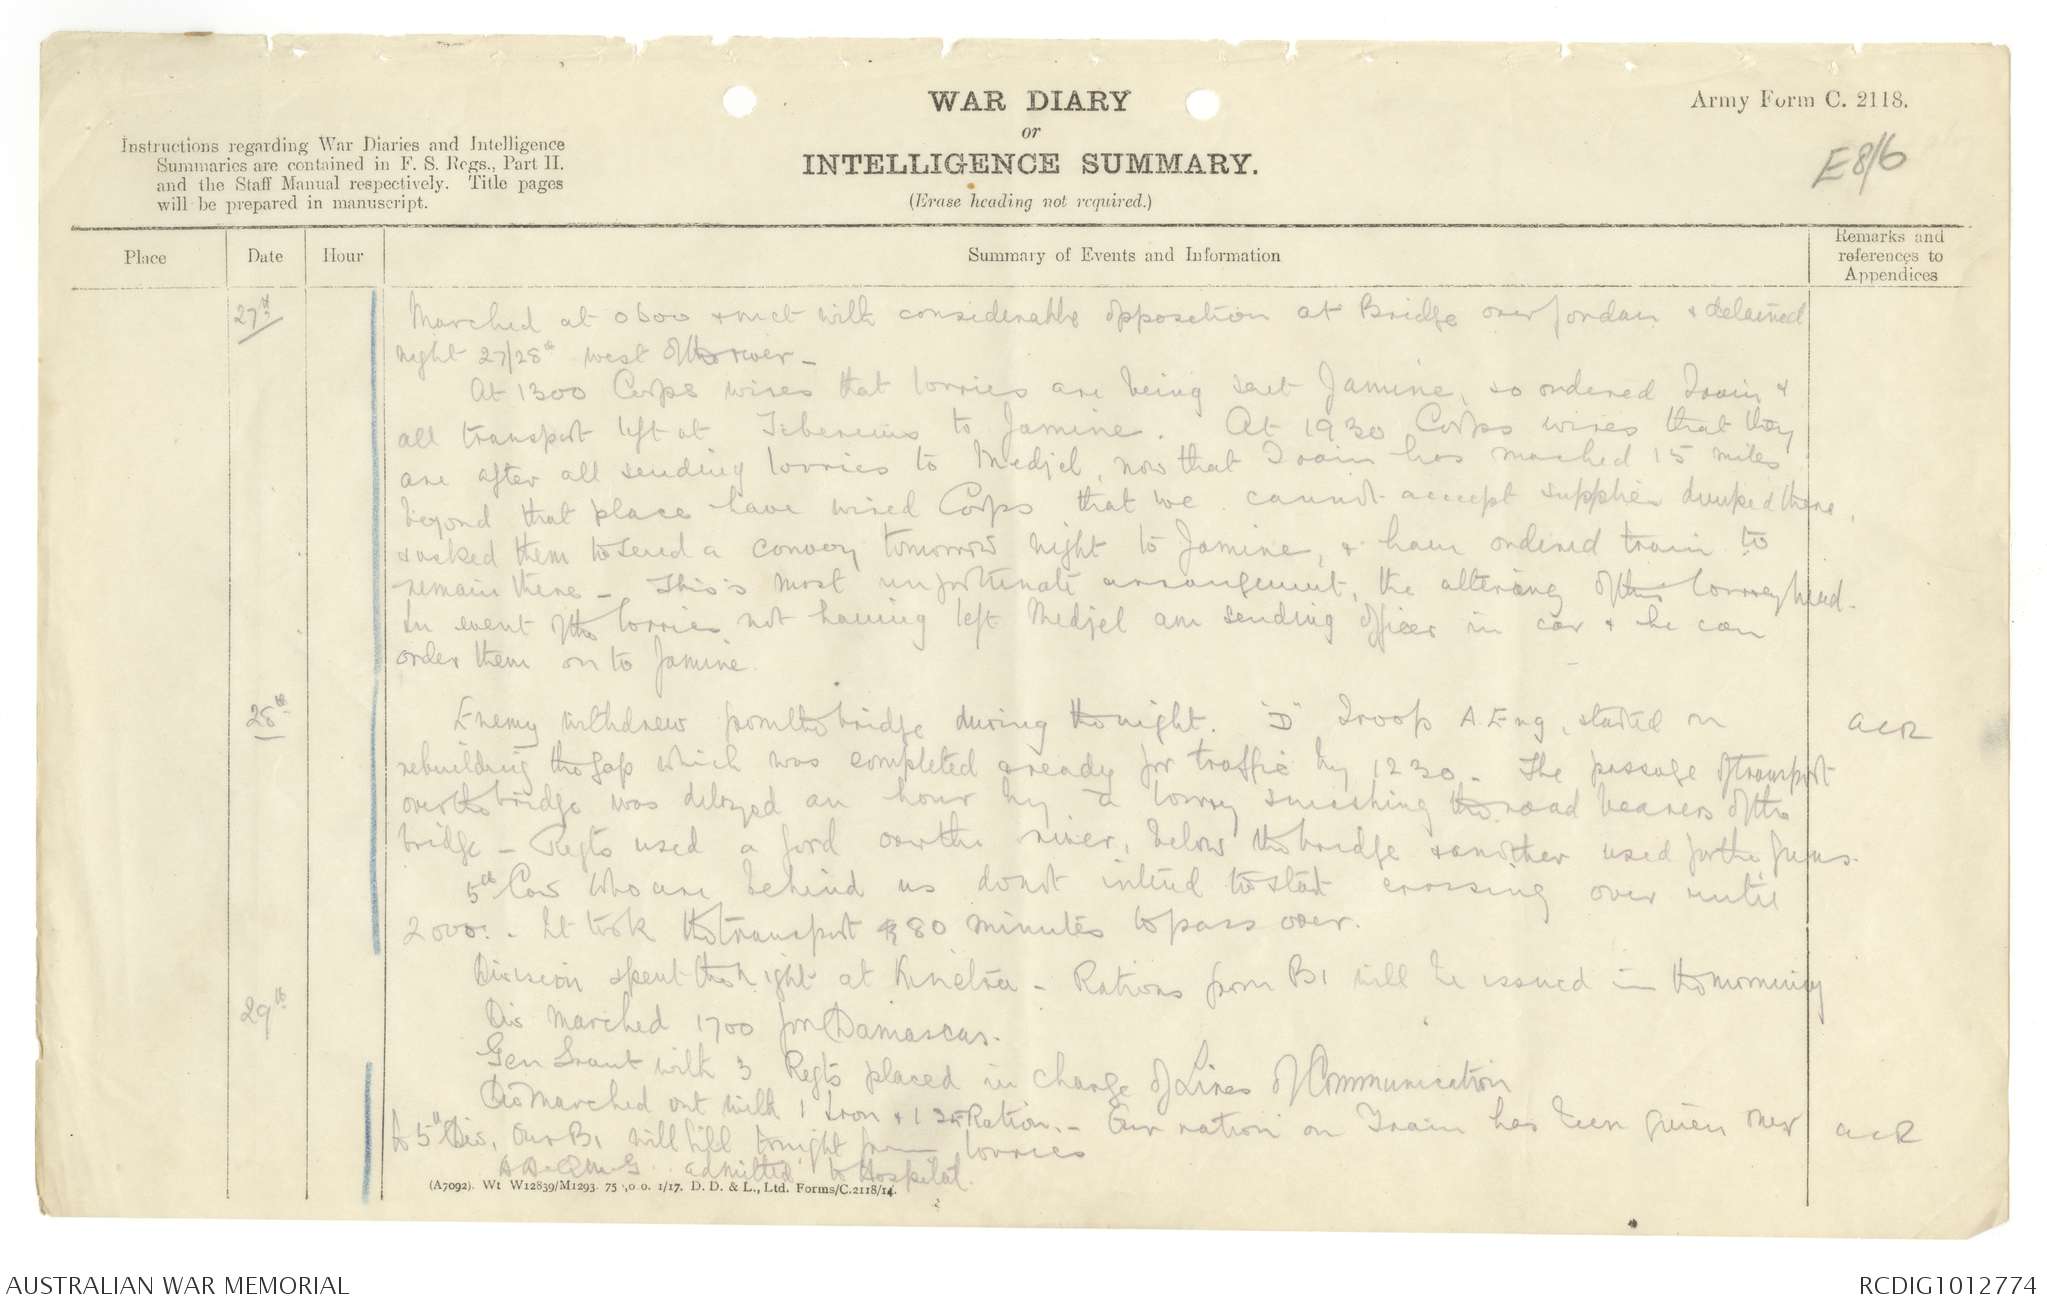 WAR DIARY
or
INTELLIGENCE SUMMARY.
(Erase heading not required.)
Army Form C. 2118.
E8/6
Instructions regarding War Diaries and Intelligence
Summaries are contained in F. S. Regs., Part II.
and the Staff Manual respectively. Title pages
will be prepared in manuscript.
Place
Date
Hour
Summary of Events and Information
Remarks and
references to
Appendices
27th
Marched at 0600 & met with considerable opposition at Bridge over Jordan & delained
night 27/28th west of the river -
At 1300 Corps wires that lorries are being sent Jamine, so ordered Train &
all transport left at Tiberius to Jamine. At 1930 Corps wires that they
are after all sending lorries to Medjel, now that Train has marched 15 miles
beyond that place have wired Corps that we cannot accept supplies dumped there,
& asked them to send a convoy tomorrow night to Jamine, & have ordered train to
remain there - This is most unfortunate arrangement, the altering of the lorry head.
In event of the lorries not having left Medjel am sending officer in car & he can
order them on to Jamine.
28th
Enemy withdrew from the bridge during the night. "D" Troop A. Eng, started on
rebuilding the gap which was completed & ready for traffic by 1230 - The passage of transport
over the bridge was delayed an hour by a lorry smashing the road bearers of the
bridge - Regts used a ford over the river, below the bridge & another used for the guns.
5th Cav who are behind us do not intend to start crossing over until
2000. - It took the transport 80 minutes to pass over.
ACR
Division spent the night at Kunetra - Rations from B1 will be issued in the morning
29th
Div marched 1700 for Damascus.
Gen Grant with 3 Regts placed in charge of Lines of Communication
Div marched out with 1 Iron & 1 Ration. - Our ration on Train has been given over
to 5th Div, Our B1 will fill tonight from lorries
ACR
A.A.Q.M.G. admitted to Hospital.
(A7092). Wt W12839/M1293. 75 ,0 0. 1/17. D. D. & L., Ltd. Forms/C.2118/14.
AUSTRALIAN WAR MEMORIAL
RCDIG1012774